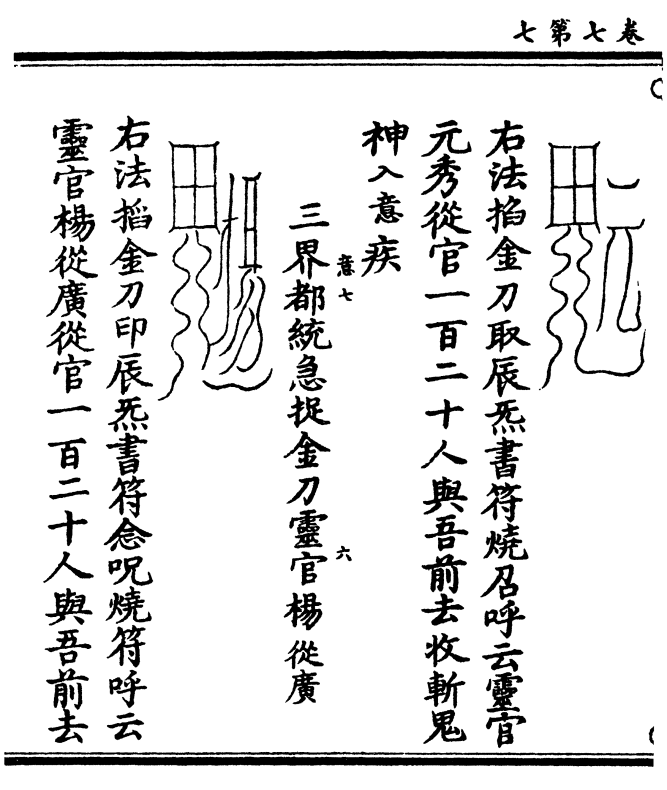 卷七第七
右法掐金刀取辰炁書符燒召呼云靈官
元秀從官一百二十人與吾前去收斬鬼
神入意疾
意七
三界都統急捉金刀靈官楊從廣
六
右法掐金刀印辰炁書符念呪燒符呼云
靈官楊從廣從官一百二十人與吾前去